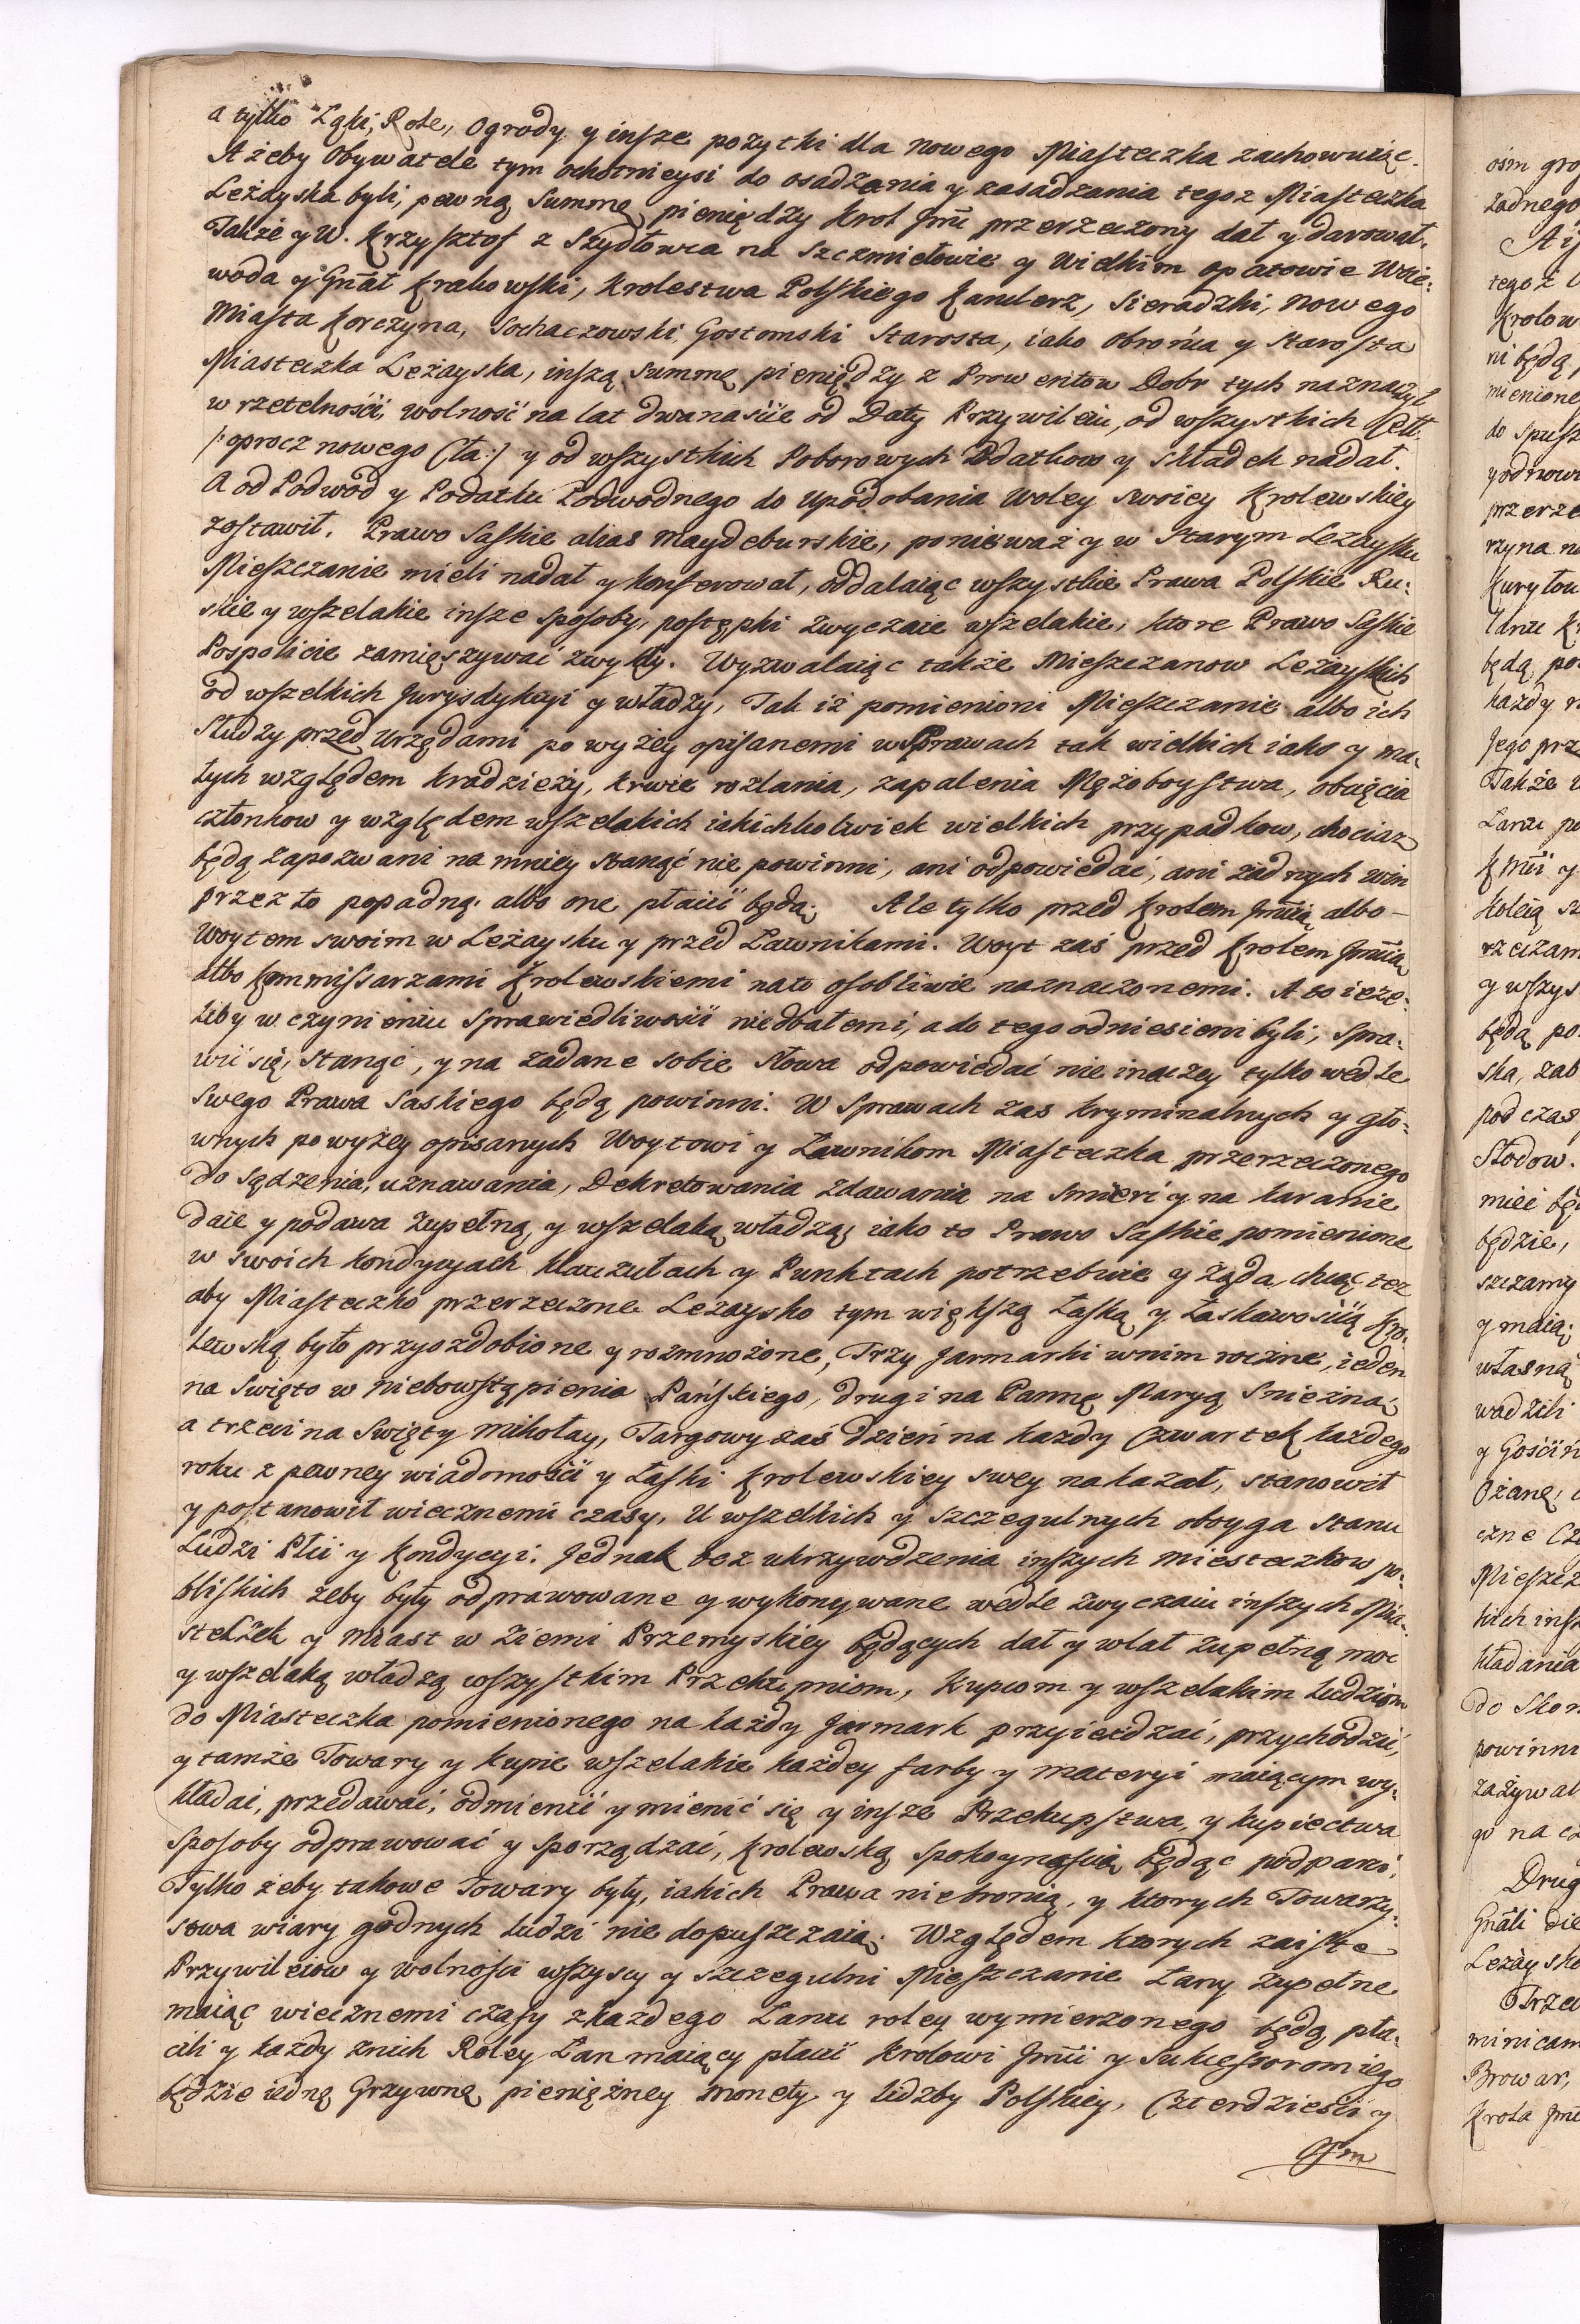 a tylko Łąki, Role, Ogrody y insze pożytki dla nowego Miasteczka zachowuiąc.
A żeby Obywatele tym ochotnieysi do osadzenia y zasadzania tegoż Miasteczka
Leżayska byli, pewną Summę pieniędzy Krol Jmć przerzeczony dał y darował.
Także y W. Krzysztof z Szydłowca na Szczmielowie y Wielkim Opatowie Woie:
woda y Gnãł Krakowski, Krolestwa Polskiego Kanclerz, Sieradzki, nowego
Miasta Korczyna, Sochaczowski, Gostomski Starosta, iako Obrońca y Starosta
Miasteczka Leżayska, inszą Summę pieniędzy z Prowentow Dobr tych naznaczył
w rzetelności wolność na lat dwanaście od Daty Przywileiu, od wszystkich Cełł.
/: oprocz nowego Cła :/ y od wszystkich Poborowych Podatkow y składek nadał.
A od Podwod y Podatku Podwodnego do upodobania Woley swoiey Krolewskiey
zostawił. Prawo Saskie alias Maydeburskie, ponieważ y w Starym Leżaysku
Mieszczanie mieli nadał y konferował, oddalaiąc wszystkie Prawa Polskie Ru:
skie y wszelakie insze sposoby, postępki zwyczaie wszelakie, ktore Prawo Saskie
Pospolicie zamięszywać zwykły. Wyzwalaiąc także Mieszczanow Leżayskich
od wszelkich Jurysdykcyi y władzy, Tak iż pomienioni Mieszczanie albo ich
Słudzy przed Urzędami powyżey opisanemi w Sprawach tak wielkich iako y ma:
łych względem kradzieży, krwie rozlania, zapalenia Mężoboystwa, obcięcia
członkow y względem wszelakich iakichkolwiek wielkich przypadkow, chociaż
będą zapozwani na mniey stanąć nie powinni, ani odpowiedać, ani żadnych win
przez to popadną albo one płacić będą. Ale tylko przed Krolem Jmcią albo -
Woytem swoim w Leżaysku y przed Ławnikami. Woyt zaś przed Krolem Jmcią
albo Kommissarzami Krolewskiemi na to osobliwie naznaczonemi. A to ieże:
liby w czynieniu Sprawiedliwości niedbałemi, a do tego odniesieni byli, spra:
wić się, stanąć, y na zadane sobie słowa odpowiedać nie inaczey tylko wedle
swego Prawa Saskiego będą powinni. W Sprawach zas kryminalnych y gło:
wnych powyżey opisanych Woytowi y Ławnikom Miasteczka przerzeczonego
do sądzenia, uznawania, Dekretowania zdawania na smierć y na karanie
daie y podawa zupełną y wszelaką władzą iako to Prawo Saskie pomienione
w swoich kondycyach Klauzułach y Punktach potrzebuie y żąda, chcąc też
aby Miasteczko przerzeczone Leżaysko tym większą Łaską y Łaskawością Kro:
lewską było przyozdobione y rozmnożone, Trzy Jarmarki w nim roczne, ieden
na Swięto w niebowstąpienia Pańskiego, drugi na Pannę Maryą Snieżną,
a trzeci na Swięty Mikołay, Targowy zas dzień na każdy Czwartek każdego
roku z pewney wiadomości y Łaski Krolewskiey swey nakazał, stanowił
y postanowił wiecznemi czasy. U wszelkich y szczegulnych oboyga stanu
Ludzi Płci y Kondycyi. Jednak bez ukrzywdzenia inszych miasteczkow po:
bliskich żeby były odprawowane y wykonywane wedle zwyczaiu inszych Mia:
steczek y miast w Ziemi Przemyskiey będących dał y wlał zupełną moc
y wszelaką władzą wszystkim Przekupniom, Kupcom y wszelakim ludziom
do Miasteczka pomienionego na każdy Jarmark przyieżdzać, przychodzić,
y tamże Towary y kupie wszelakie każdey farby y materyi maiącym wy:
kładać, przedawać, odmienić y mienić się y insze Przekupstwa, y kupiectwa
sposoby odprawować y sporządzać, Krolewską spokoynością będąc podparci,
Tylko żeby takowe Towary były, iakich Prawa nie bronią, y ktorych Towarzy:
stwa wiary godnych ludzi nie dopuszczaią. Względem ktorych zaiste
Przywileiow y wolności wszyscy y szczegulni Mieszczanie Łany zupełne
maiąc wiecznemi czasy z każdego Łanu roley wymierzonego będą pła:
cili y każdy z nich Roley Łan maiący płacić Krolowi Jmci y Sukcessorom iego
będzie iedną Grzywnę pieniężney monety y liczby Polskiey, Czterdzieści y
Osm